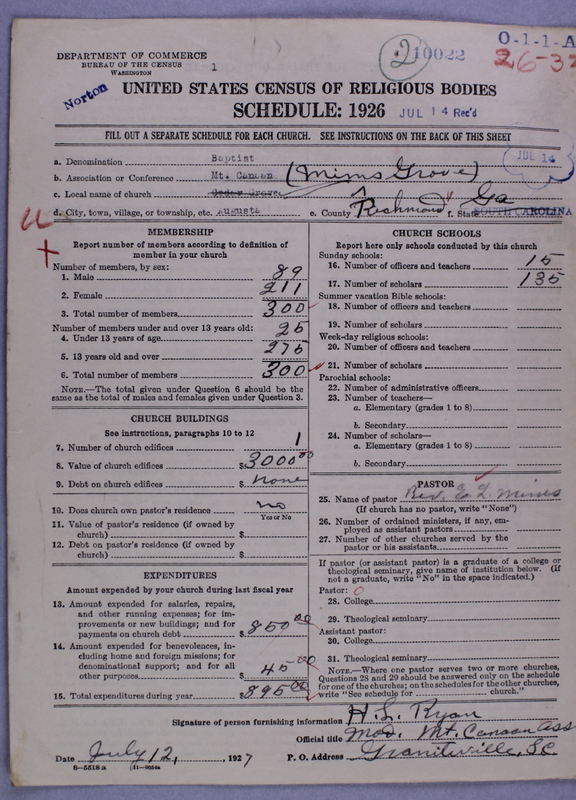 DEPARTMENT OF COMMERCE
BUREAU OF THE CENSUS
WASHINGTON
1
2 10022
O-1-1-A
26-32
Norton
UNITED STATES CENSUS OF RELIGIOUS BODIES
SCHEDULE: 1926 JUL 14 Rec'd
FILL OUT A SEPARATE SCHEDULE FOR EACH CHURCH. SEE INSTRUCTIONS ON THE BACK OF THIS SHEET
JUL 14
a. Denomination Baptist
b. Association or Conference Mt. Canaan (Mims Grove)
c. Local name of church Cedar Grove
d. City, town, village, or township, etc. Augusta e. County Richmond f. State SOUTH CAROLINA Ga
MEMBERSHIP
Report number of members according to definition of
member in your church
Number of members, by sex:
1. Male 89
2. Female 211
3. Total number of members 300
Number of members under and over 13 years old:
4. Under 13 years of age 25
5. 13 years old and over 275
6. Total number of members 300
NOTE.—The total given under Question 6 should be the
same as the total of males and females given under Question 3.
CHURCH BUILDINGS
See instructions, paragraphs 10 to 12
7. Number of church edifices 1
8. Value of church edifices $3000 00
9. Debt on church edifices $ none
10. Does church own pastor's residence no
Yes or No
11. Value of pastor's residence (if owned by
church) $
12. Debt on pastor's residence (if owned by
church) $
EXPENDITURES
Amount expended by your church during last fiscal year
13. Amount expended for salaries, repairs,
and other running expenses; for im-
provements or new buildings; and for
payments on church debt $850 00
14. Amount expended for benevolences, in-
cluding home and foreign missions; for
denominational support; and for all
other purposes $45 00
15. Total expenditures during year $895 00
CHURCH SCHOOLS
Report here only schools conducted by this church
Sunday schools:
16. Number of officers and teachers 15
17. Number of scholars 135
Summer vacation Bible schools:
18. Number of officers and teachers
19. Number of scholars
Week-day religious schools:
20. Number of officers and teachers
21. Number of scholars
Parochial schools:
22. Number of administrative officers
23. Number of teachers—
a. Elementary (grades 1 to 8)
b. Secondary
24. Number of scholars—
a. Elementary (grades 1 to 8)
b. Secondary
PASTOR
25. Name of pastor Rev. E. L. Mims
(If church has no pastor, write "None")
26. Number of ordained ministers, if any, em-
ployed as assistant pastors
27. Number of other churches served by the
pastor or his assistants
If pastor (or assistant pastor) is a graduate of a college or
theological seminary, give name of institution below. (If
not a graduate, write "No" in the space indicated.)
Pastor: 0
28. College
29. Theological seminary
Assistant pastor:
30. College
31. Theological seminary
NOTE.—Where one pastor serves two or more churches,
Questions 28 and 29 should be answered only on the schedule
for one of the churches; on the schedules for the other churches,
write "See schedule for church."
Signature of person furnishing information H. L. Ryan
Official title Mod. Mt. Canaan Ass
Date July 12, 1927 P. O. Address Graniteville, S.C.
8-5518a 11-9054a